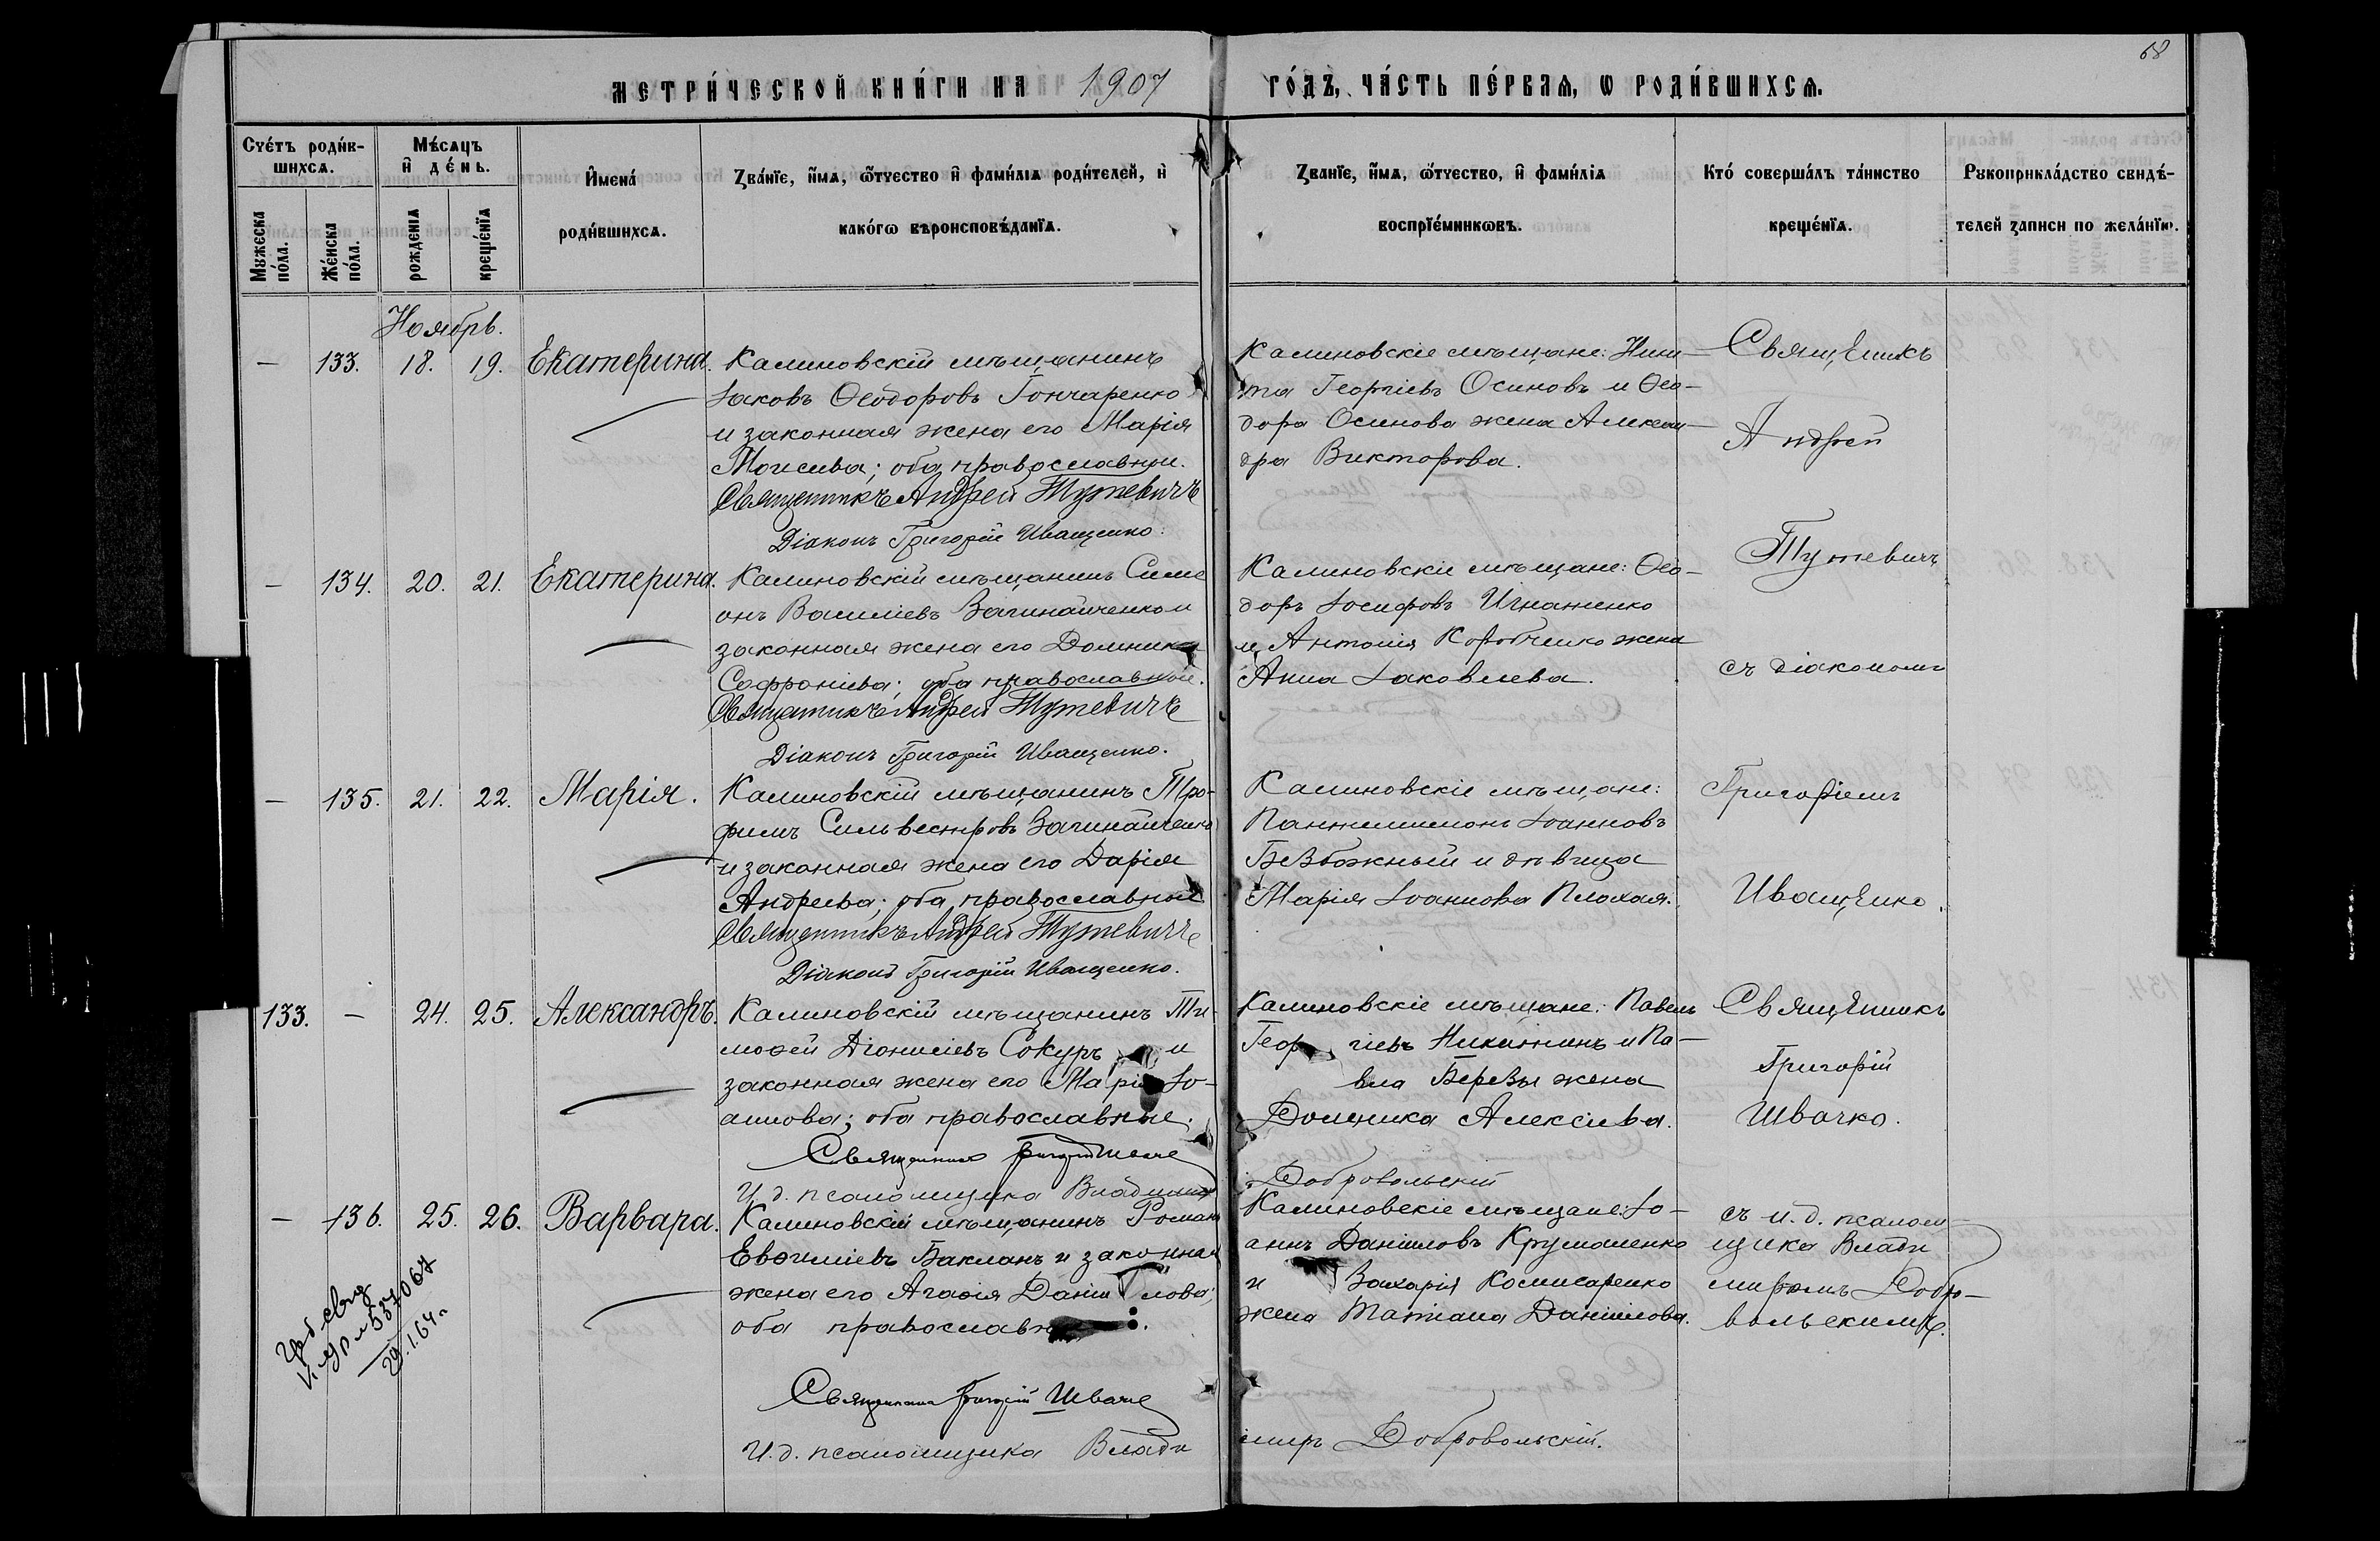 68
МЕТРИ́ЧЕСКОЙ КНИ́ГИ НА 1907 ГО́ДЪ, ЧА́СТЬ ПЕ́РВАѦ, Ѡ РОДИ́ВШИХСѦ.
Сче́тъ роди́в-
шихсѧ.
Мужеска по́ла.
Же́нска по́ла.
Мѣ́сѧцъ
и҆ де́нь.
рожденїѧ
креще́нїѧ
И҆мена́
роди́вшихсѧ.
Зва́нїе, и҆́мѧ, ѻ҆́тчество и҆ фами́лїѧ роди́телей, и҆
како́гѡ вѣроисповѣ́данїѧ.
Званїе, и҆́мѧ, ѻ҆́тчество, и҆ фами́лїѧ
воспрїе́мникѡвъ.
Кто́ соверша́лъ та́инство
креще́нїѧ.
Рукоприкла́дство свидѣ́-
телей записи по жела́нїю.
Ноябрь.
— 133. 18. 19. Екатерина.
Калиновскій мѣщанинъ
Іаковъ Ѳеодоровъ Гончаренко
и законная жена его Марія
Моисеева; оба православные.
Священникъ Андрей Тутевичъ
Діаконъ Григорій Иващенко.
Калиновскіе мѣщане: Ники-
та Георгіевъ Осиповъ и Ѳео-
дора Осипова жена Алексан-
дра Викторова.
Священникъ
Андрей
Тутевичъ
съ діакономъ
— 134. 20. 21. Екатерина.
Калиновскій мѣщанинъ Симе
онъ Василіевъ Загинайченко и
законная жена его Домника
Софроніева; оба православные.
Священникъ Андрей Тутевичъ
Діаконъ Григорій Иващенко.
Калиновскіе мѣщане: Ѳео-
доръ Іосифовъ Игнатенко
и Антонія Коробченко жена
Анна Іаковлева.
— 135. 21. 22. Марія.
Калиновскій мѣщанинъ Тро-
фимъ Сильвестровъ Загинайченко
и законная жена его Дарія
Андреева; оба православные
Священникъ Андрей Тутевичъ
Діаконъ Григорій Иващенко.
Калиновскіе мѣщане:
Пантелимонъ Іоанновъ
Безбожный и дѣвица
Марія Іоаннова Плохая.
Григоріемъ
Иващенко.
133. — 24. 25. Александръ.
Калиновскій мѣщанинъ Ти-
моѳей Діонисіевъ Сокуръ и
законная жена его Марія Іо-
аннова; оба православные.
Священникъ Григорій Швачко
И. д. псаломщика Владимиръ Добровольскій
Калиновскіе мѣщане: Павелъ
Георгіевъ Никитинъ и Па-
вла Березы жена
Домника Алексіева.
Священникъ
Григорій
Швачко.
— 136. 25. 26. Варвара.
Калиновскій мѣщанинъ Романъ
Евѳиміевъ Бакланъ и законная
жена его Агаѳія Даніилова;
оба православн.
Священникъ Григорій Швачко
И. д. псаломщика Влади миръ Добровольскій.
Калиновскіе мѣщане: Іо-
аннъ Даніиловъ Крумаленко
и Захарія Комисаренко
жена Татіана Даніилова.
съ и. д. псалом-
щика Влади
миромъ Добро-
вольскимъ.
29.1.64 г.